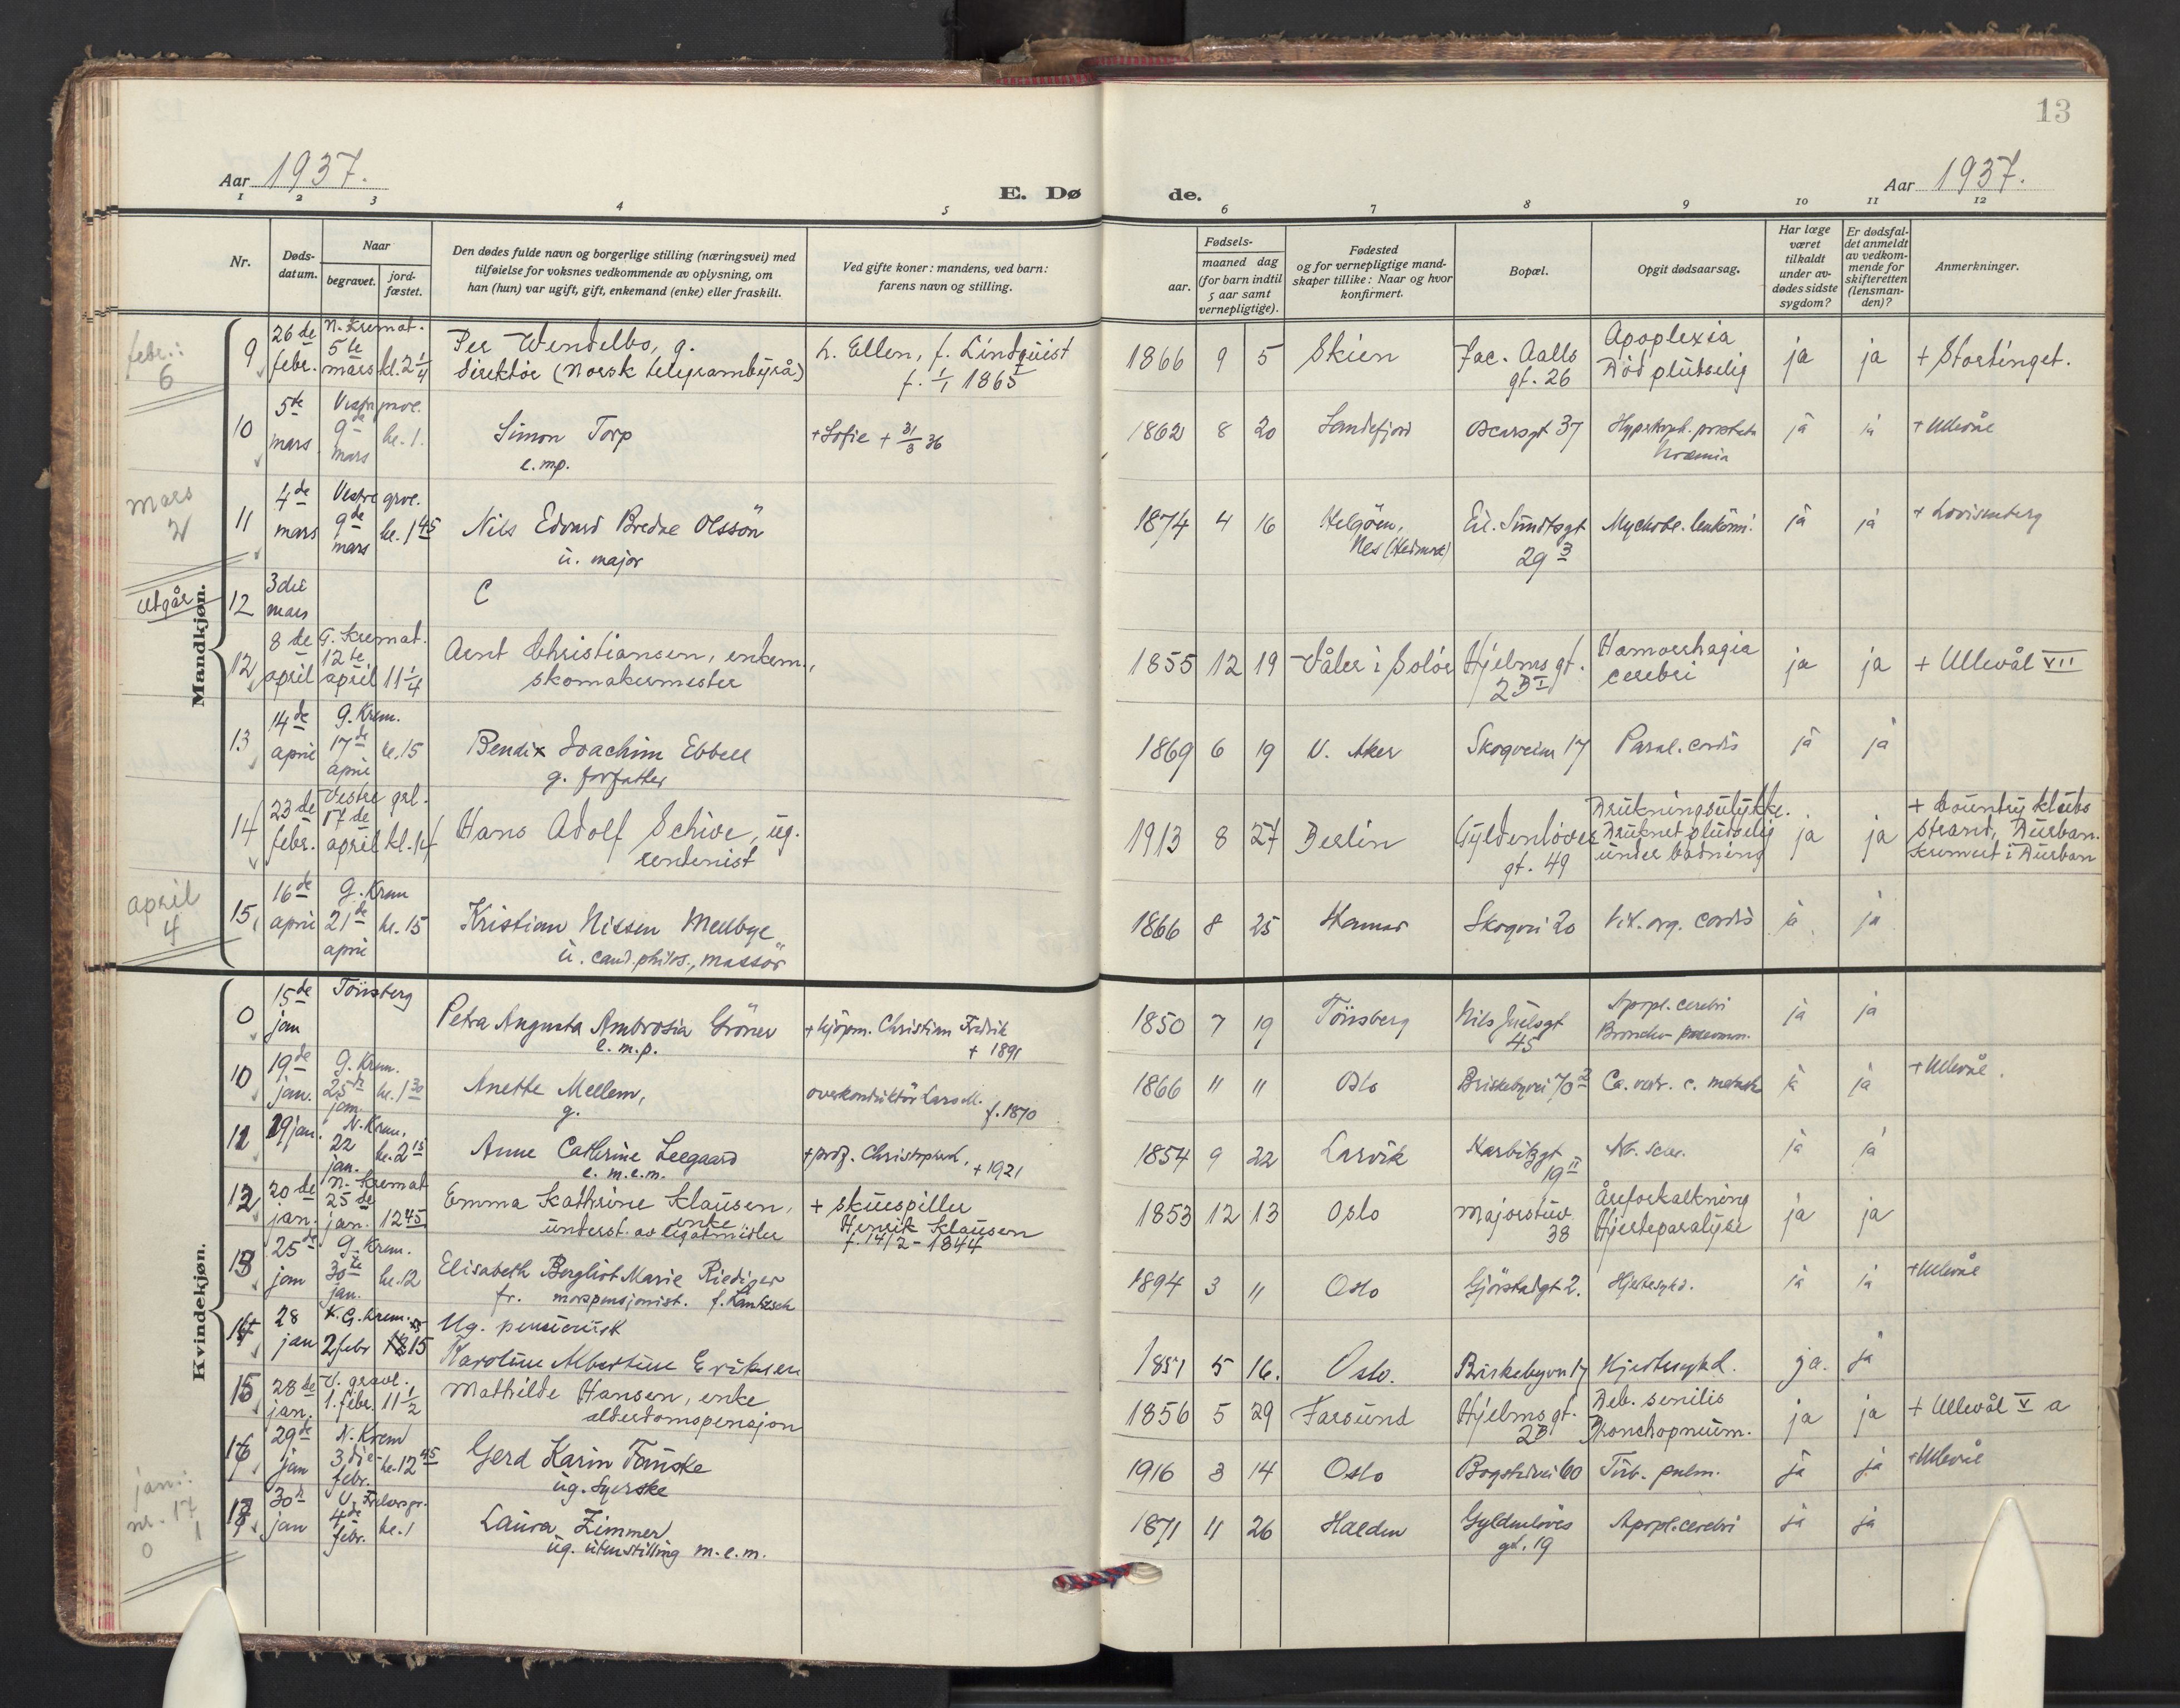 13
Aar 1937.
E. Dø de.
Aar 1937.
1 2 3 4 5 6 7 8 9 10 11 12
Nr.
Døds-
datum.
Naar
begravet.
jord-
fæstet.
Den dødes fulde navn og borgerlige stilling (næringsvei) med
tilføielse for voksnes vedkommende av oplysning, om
han (hun) var ugift, gift, enkemand (enke) eller fraskilt.
Ved gifte koner: mandens, ved barn:
farens navn og stilling.
Fødsels-
aar.
maaned dag
(for barn indtil
5 aar samt
vernepligtige).
Fødested
og for vernepligtige mand-
skaper tillike: Naar og hvor
konfirmert.
Bopæl.
Opgit dødsaarsag.
Har læge
været
tilkaldt
under av-
dødes sidste
sygdom?
Er dødsfal-
det anmeldt
av vedkom-
mende for
skifteretten
(lensman-
den)?
Anmerkninger.
Mandkjøn.
febr.:
6
9 26de febr. N. Kremat. 5te mars kl. 2 1/4
Per Wendelbo, g.
Direktör (Norsk telegrambyrå)
h. Ellen, f. Lindquist
f. 1/1 1865
1866 9 5 Skien Jac. Aalls gt. 26
Apoplexia
Död plutselig
ja ja + Stortinget.
10 5te mars Vestre grvl. 9de mars kl. 1.
Simon Torp
e. mp.
+ Sofie + 31/3 36
1862 8 20 Sandefjord Oscarsgt 37
Hypertroph. prostata
Uræmia
ja ja + Ullevål
mars
2
11 4de mars Vestre grvl. 9de mars kl. 1 45
Nils Edvard Bredve Olssön
u. major
1874 4 16 Helgöen,
Nes (Hedmark)
Eil. Sundtsgt
29 3
ja ja + Lovisenberg
utgår
12 3die mars
C
12 8de april G. Kremat. 12te april 11 1/4
Arnt Christiansen, enkem.,
skomakermester
1855 12 19 Våler i Solör Hjelms gt.
2B I
Hæmorrhagia
cerebri
ja ja + Ullevål VII
13 14de april G. Krem. 17de april kl. 15
Bendix Joachim Ebbell
g. forfatter
1869 6 19 V. Aker Skogveien 17 Paral. cordis ja ja
14 23de febr. Vestre grl. 17de april kl. 14
Hans Adolf Schive, ug.
rentenist
1913 8 27 Berlin Gyldenlöves
gt. 49
Drukningsulykke.
Druknet pludselig
under badning
ja ja
+ Country klubs
strand, Durban.
Kremert i Durban
april
4
15 16de april G. Krem 21de april kl. 15
Kristian Nissen Medbye
u. cand. philos., massör
1866 8 25 Hamar Skogvei 20 Vit. org. cordis ja ja
Kvindekjøn.
0 15de jan Tönsberg
Petra Augusta Ambrosia Gröner
e. m. p.
+ kjöpm. Christian Fredrik
+ 1891
1850 7 19 Tönsberg Nils Juelsgt
45
Apopl. cerebri
Broncho-pneumon.
ja ja
10 19de jan. G. Krem. 25de jan. kl. 1 30
Anette Mellem,
g.
overkonduktör Lars M.
f. 1870
1866 " " Oslo Briskebyvei 70 2 Ca. ventr. c. metast. ja ja + Ullevål.
11 19 jan. N. Krem. 22 jan. kl. 2 15
Anne Cathrine Leegaard
e. m. e. m.
+ prof. Christopher L.
+ 1921
1854 9 22 Larvik Harbitzgt
19 II
ja ja
12 20de jan. N. Kremat 25de jan. 12 45
Emma Kathrine Klausen,
enke
underst. av legatmidler
+ skuespiller
Henrik Klausen
f. 14/2 - 1844
1853 12 13 Oslo Majorstuv.
38
Åreforkalkning
Hjerteparalyse
ja ja
13 25de jan G. Krem. 30te jan. kl. 12
Elisabeth Bergliot Marie Riediger
fr. morspensjonist. f. Lantzsch
1894 3 " Oslo Gjörstadgt 2. Hjertesykd. ja ja + Ullevål
14 28 jan V. G. Krem. 2 febr 13 15
Ug. pensionist
Karoline Albertine Eriksen
1851 5 16. Oslo. Briskebyvn 17 Hjertesykd. ja. ja
15 28de jan. V. gravl. 1. febr. 11 1/2
Mathilde Hansen, enke
alderdomspensjon
1856 5 29 Farsund Hjelms gt.
2B
Deb. senilis
Bronchopneum.
ja ja + Ullevål V a
16 29de jan N. Krem 3die febr. kl. 12 45
Gerd Karin Fauske
ug. Syerske
1916 3 14 Oslo Bogstadvei 60 Tub. pulm. ja ja + Ullevål
jan.:
nr. 17
0 1
17 30te jan V. Frelsersgr. 4de febr. kl. 1
Laura Zimmer
ug. uten stilling m. e. m.
1871 11 26 Halden Gyldenlöves
gt. 19
Apopl. cerebri ja ja